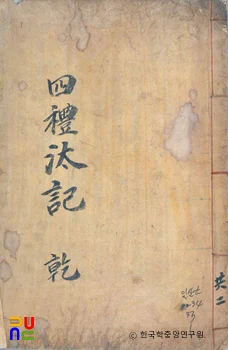 四禮汰記 乾
共二
ⓒ 한국학중앙연구원